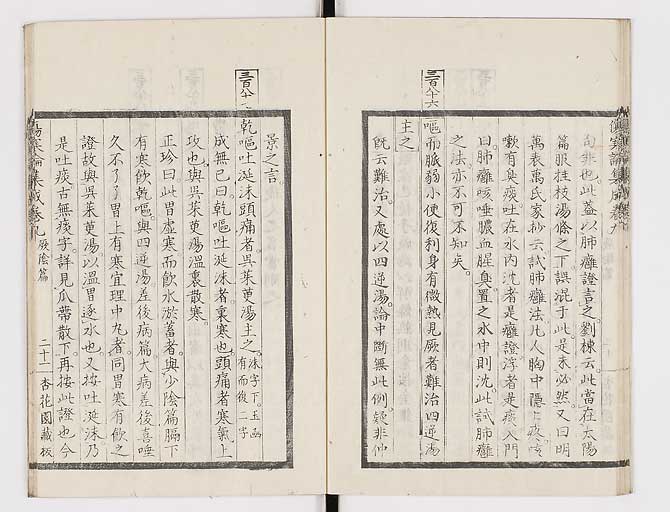 句非也此蓋以肺癰證言之劉棟云此當在太陽
篇服桂枝湯條之下誤混于此是柔必然又曰明
萬表萬氏家抄云試肺癰法凡人胸中隱々疼咳
嗽有臭痰吐在水內沈者是癰證浮者是痰入門
曰肺癰咳唾膿血腥臭置之水中則沈此試肺癰
之法亦不可不知矣
三百八十六
嘔而脈弱小便復利身有微熱見厥者難治四逆湯
主之
既云難治又處以四逆湯論中斷無此例疑非仲
景之言
三百八十七
乾嘔吐涎沫頭痛者吳茱萸湯主之 沫字下玉函有而復二字
成無己曰乾嘔吐涎沫者裏寒也頭痛者寒氣上
攻也與吳茱萸湯溫裏散寒
正珍曰此胃虛寒而飲水淤蓄者與少陰篇膈下
有寒飲乾嘔與四逆湯差後病篇大病差後喜唾
久不了了胃上有寒宜理中丸者同胃寒有飲之
證故與吳茱萸湯以溫胃逐水也又按吐涎沫乃
是吐痰古無痰字詳見瓜蔕散下再按此證也今
傷寒論集成卷九 厥陰篇 二十二 杏花園藏板